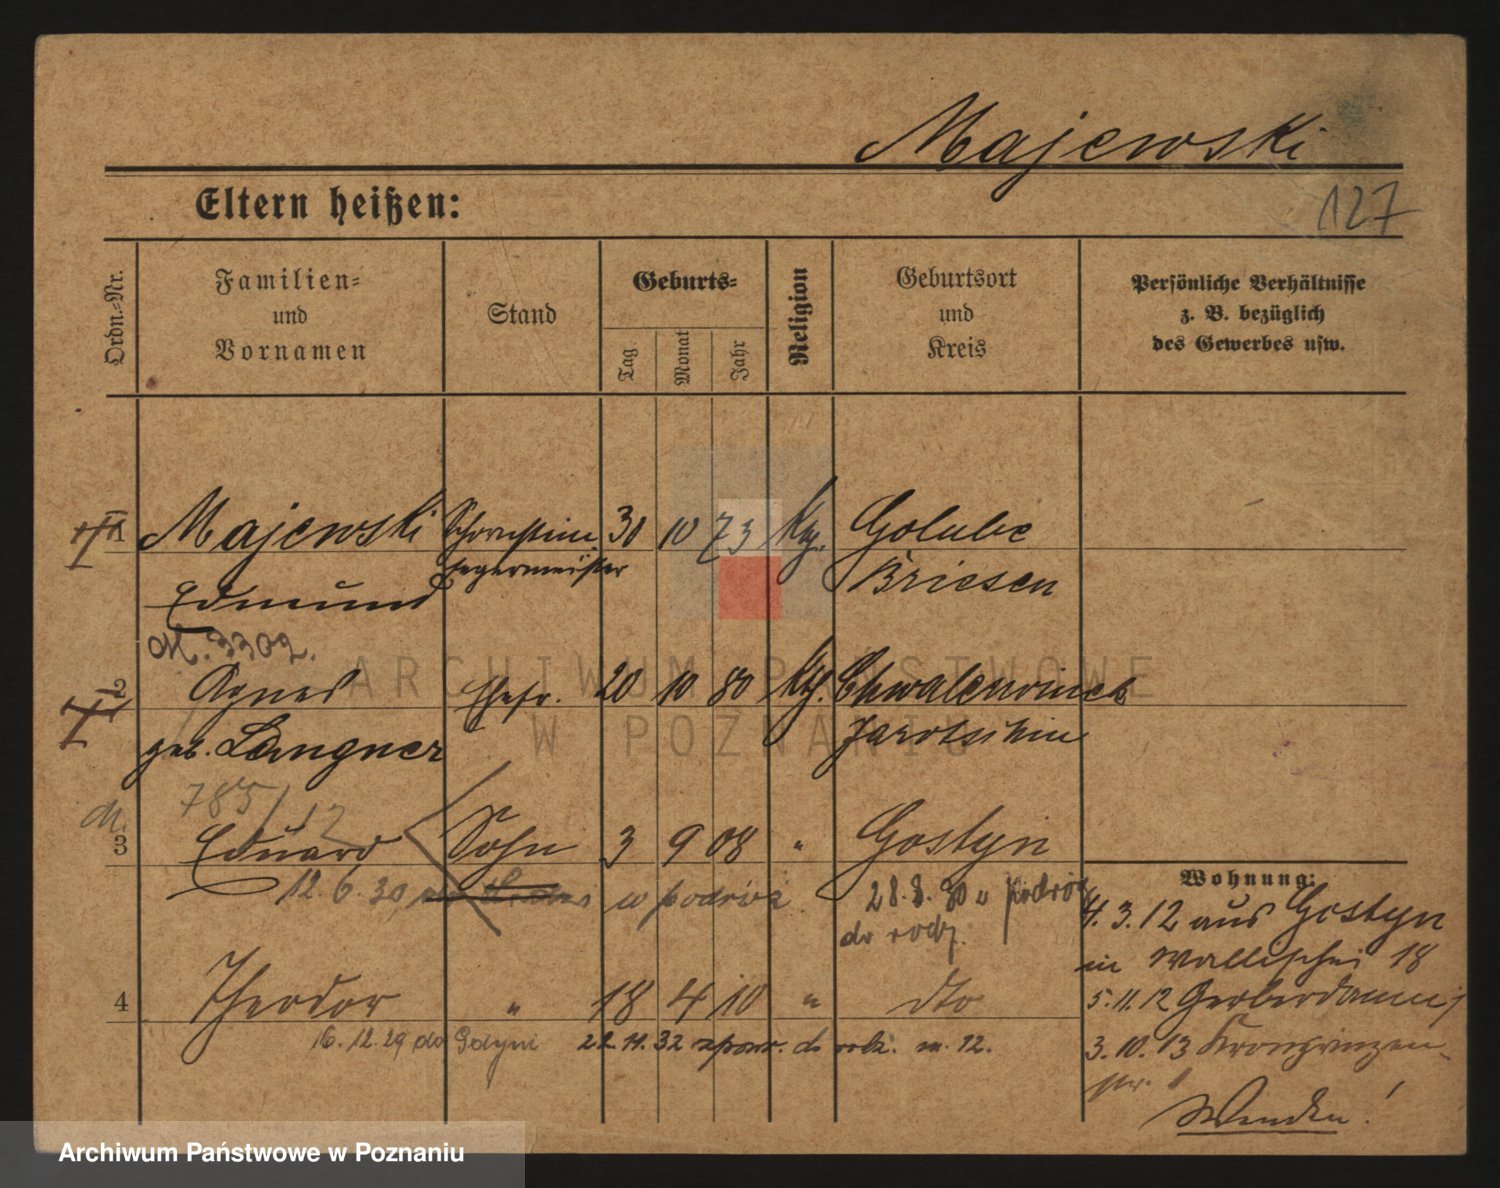 Majewski
127
Eltern heißen:
Ordn.-Nr.
Familien-
und
Vornamen
Stand
Geburts-
Tag
Monat
Jahr
Religion
Geburtsort
und
Kreis
Persönliche Verhältnisse
z. B. bezüglich
des Gewerbes usw.
1 Majewski Schornstein- 30 10 73 Golube
fegermeister Briesen
Edmund
M. 3302.
2 Agnes Ehefr. 20 10 80
geb. Langner Jarotschin
785/12
3 Eduard Sohn 3 9 08 " Gostyn
12.6.30 w podróż 28.8.30 z podróż
do rodz.
Wohnung:
4.3.12 aus Gostyn
in Wallischei 18
4 Theodor " 18 4 10 " dto
5.11.12 Gerberdamm 1
16.12.29 do Gdyni 22.11.32 do rodz. m. 12.
3.10.13 Kronprinzen-
str. 1
Wenden!
ARCHIWUM PAŃSTWOWE
W POZNANIU
Archiwum Państwowe w Poznaniu